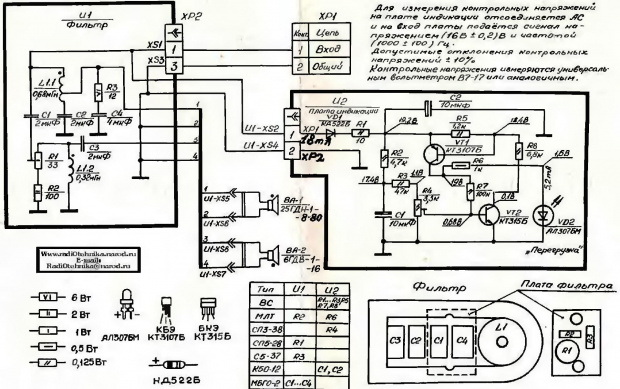 U1
Фильтр
XP2
XS1
XS3
1
3
L1.1
0,68мГн
R3
12
C1
2мкФ
C2
2мкФ
C4
4мкФ
C3
2мкФ
R1
33
L1.2
0,32мГн
R2
100
XP1
Конт.
Цепь
1
Вход
2
Общий
Для измерения контрольных напряжений
на плате индикации отсоединяется АС
и на вход платы подаётся сигнал на-
пряжением (16В ± 0,2)В и частотой
(1000 ± 100) Гц.
Допустимые отклонения контрольных
напряжений ± 10%.
Контрольные напряжения измеряются универсаль-
ным вольтметром В7-17 или аналогичным.
U2
Плата индикации
U1-XS2
U1-XS4
XP1
1
2
XP2
VD1
R1
10
C2
10мкФ
R5
R2
4,7к
VT1
КТ3107Б
R6
1к
R8
6,8к
R3
47к
R4
3,3к
R7
100к
VT2
КТ315Б
C1
10мкФ
VD2
АЛ307БМ
5,2mA
„Перегрузка"
1
U1-XS5
2
3
U1-XS6
4
U1-XS7
BA-1
25ГДН-1-
-8-80
BA-2
6ГДВ-1-
-16
www.radiotehnika.narod.ru
E-mail:
RadiOtehnika@narod.ru
6 Вт
2 Вт
1 Вт
0,5 Вт
0,125 Вт
АЛ307БМ
КБЭ
КТ3107Б
БКЭ
КТ315Б
КД522Б
Тип
U1
U2
ВС
МЛТ
R2
R6
СП3-38
R4
СП5-28
R1
С5-37
R3
К50-12
C1, C2
МБГО-2
C1...C4
Фильтр
Плата фильтра
C3
C2
C1
C4
L1
R2
R1
R3